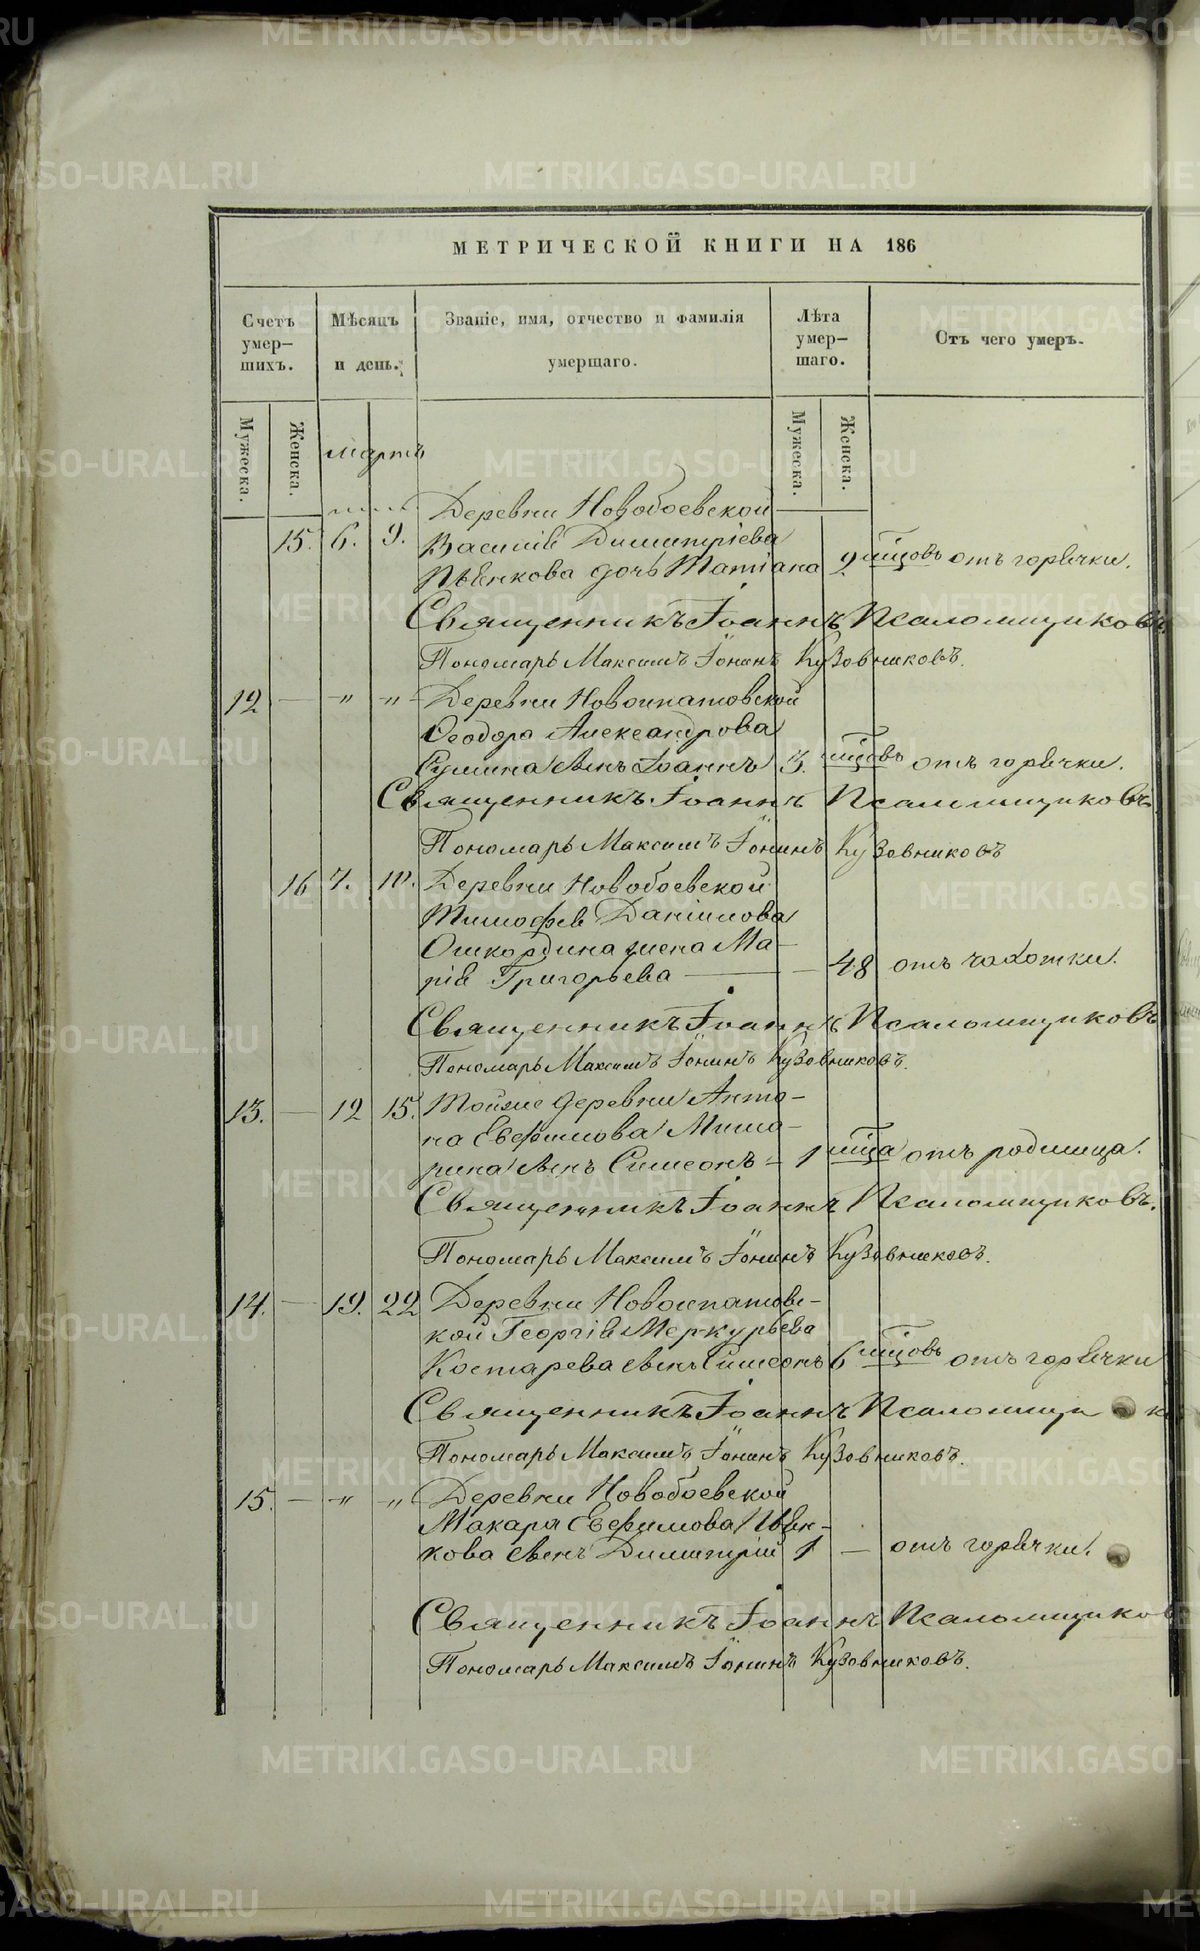 МЕТРИЧЕСКОЙ КНИГИ НА 186
Счетъ умер-шихъ.
Мѣсяцъ и день.
Званіе, имя, отчество и фамилія умершаго.
Лѣта умер-шаго.
Отъ чего умеръ.
Мужеска.
Женска.
Мужеска.
Женска.
Мартъ
Деревни Новобоевской
15. 6. 9. Василія Димитріева
Пьянкова дочь Татіана 2 мцовъ отъ горячки.
Священникъ Іоаннъ Псаломщиковъ
Пономарь Максимъ Іонинъ Кузовниковъ.
12 — " " Деревни Новоипатовской
Ѳеодора Александрова
сынъ Іоаннъ 3. мцовъ отъ горячки.
Священникъ Іоаннъ Псаломщиковъ
Пономарь Максимъ Іонинъ Кузовниковъ
16 7. 10. Деревни Новобоевской
Тимофея Даніилова
Ошкордина жена Ма-
рія Григорьева — — 48 отъ чахотки.
Священникъ Іоаннъ Псаломщиковъ
Пономарь Максимъ Іонинъ Кузовниковъ.
13. — 12 15. Тойже деревни Анто-
на Евфимова Миша-
рина сынъ Симеонъ — 1 мца отъ родимца.
Священникъ Іоаннъ Псаломщиковъ.
Пономарь Максимъ Іонинъ Кузовниковъ.
14. — 19. 22 Деревни Новоипатовс-
кой Георгія Меркурьева
Костарева сынъ Симеонъ 6 мцовъ отъ горячки
Священникъ Іоаннъ Псаломщи к
Пономарь Максимъ Іонинъ Кузовниковъ.
15. — " " Деревни Новобоевской
Макара Евфимова Пьян-
кова сынъ Димитрій 1 — отъ горячки.
Священникъ Іоаннъ Псаломщиков
Пономарь Максимъ Іонинъ Кузовниковъ.
METRIKI.GASO-URAL.RU